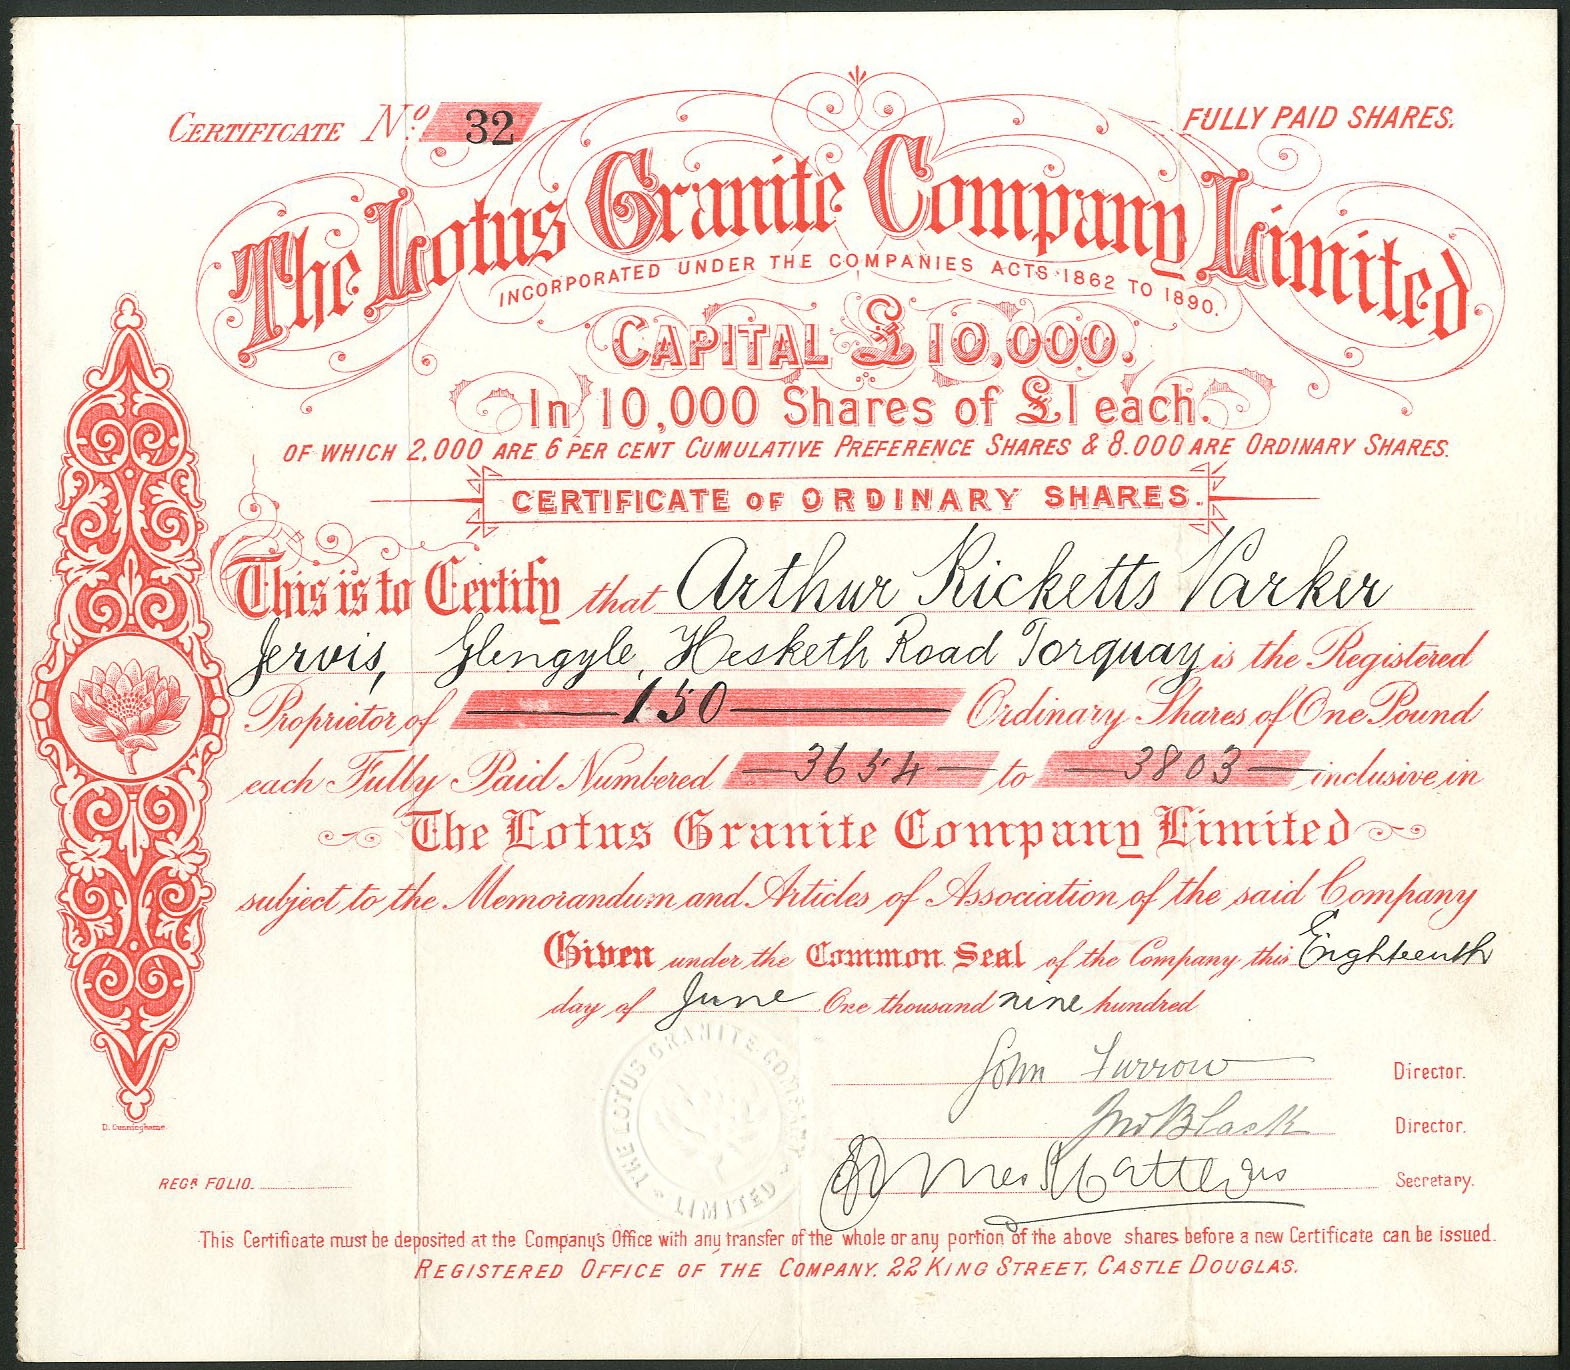 CERTIFICATE No. 32
FULLY PAID SHARES.
The Lotus Granite Company Limited
INCORPORATED UNDER THE COMPANIES ACTS 1862 TO 1890.
CAPITAL £10,000.
In 10,000 Shares of £1 each.
OF WHICH 2,000 ARE 6 PER CENT CUMULATIVE PREFERENCE SHARES & 8.000 ARE ORDINARY SHARES.
CERTIFICATE OF ORDINARY SHARES.
This is to Certify that Arthur Ricketts Varker
Jervis, Glengyle, Hesketh Road Torquay is the Registered
Proprietor of 150 Ordinary Shares of One Pound
each Fully Paid Numbered 3654 to 3803 inclusive, in
The Lotus Granite Company Limited
subject to the Memorandum and Articles of Association of the said Company
Given under the Common Seal of the Company this Eighteenth
day of June One thousand nine hundred
John Furrow Director.
Jno Black Director.
Secretary.
THE LOTUS GRANITE COMPANY LIMITED
D. Cunninghame.
REGR. FOLIO.
This Certificate must be deposited at the Company's Office with any transfer of the whole or any portion of the above shares before a new Certificate can be issued.
REGISTERED OFFICE OF THE COMPANY. 22 KING STREET, CASTLE DOUGLAS.